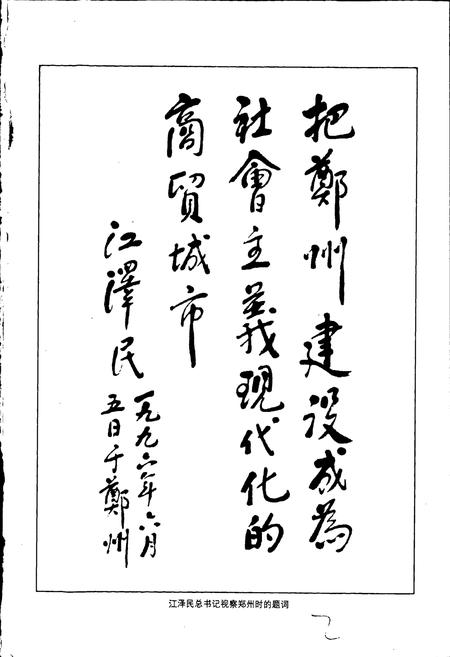 把鄭州建設成為
社會主義現代化的
商貿城市
江澤民
一九九六年六月
五日于鄭州
江泽民总书记视察郑州时的题词